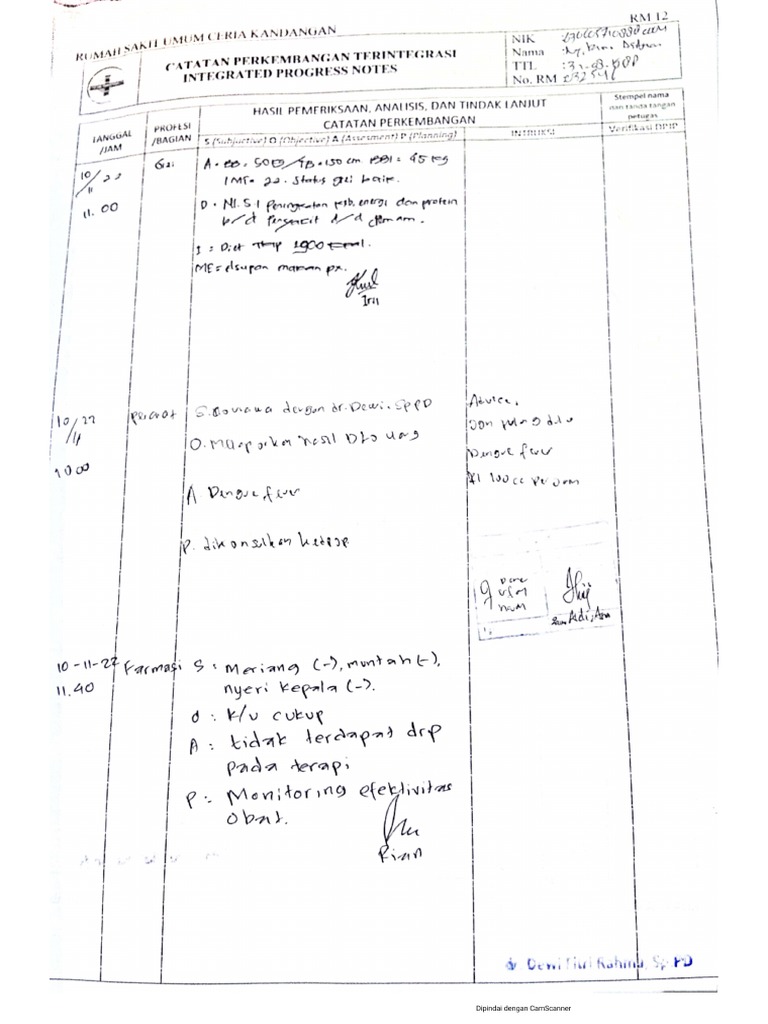 RM 12
RUMAH SAKIT UMUM CERIA KANDANGAN
CATATAN PERKEMBANGAN TERINTEGRASI
INTEGRATED PROGRESS NOTES
NIK
Nama
TTL :
No. RM
TANGGAL
/JAM
PROFESI
/BAGIAN
HASIL PEMERIKSAAN, ANALISIS, DAN TINDAK LANJUT
CATATAN PERKEMBANGAN
S (Subjective) O (Objective) A (Assesment) P (Planning)
INSTRUKSI
Stempel nama
dan tanda tangan
petugas
Verifikasi DPJP
10/11 22
11.00
Gizi
A. BB. 50 /TB. 150 cm BBI = 45 kg
IMT = 22. Status gizi baik.
D. NI.5.1 Peningkatan keb. energi dan protein
b/d Penyakit d/d demam.
I : Diet 1900
ME = asupan makan px.
Iris
10/11 22
1000
S. dengan dr. Dewi. SpPD
O. Melaporkan hasil ulang
A. Dengue fever
P. dikonsulkan
Advice.
Dengue fever
100 cc per jam
10-11-22
11.40
Farmasi
S : Meriang (-), muntah (-),
nyeri kepala (-).
O : k/u cukup
A : tidak terdapat drp
pada terapi
P : Monitoring efektivitas
obat.
Rian
dr. Dewi Rahma, Sp.PD
Dipindai dengan CamScanner